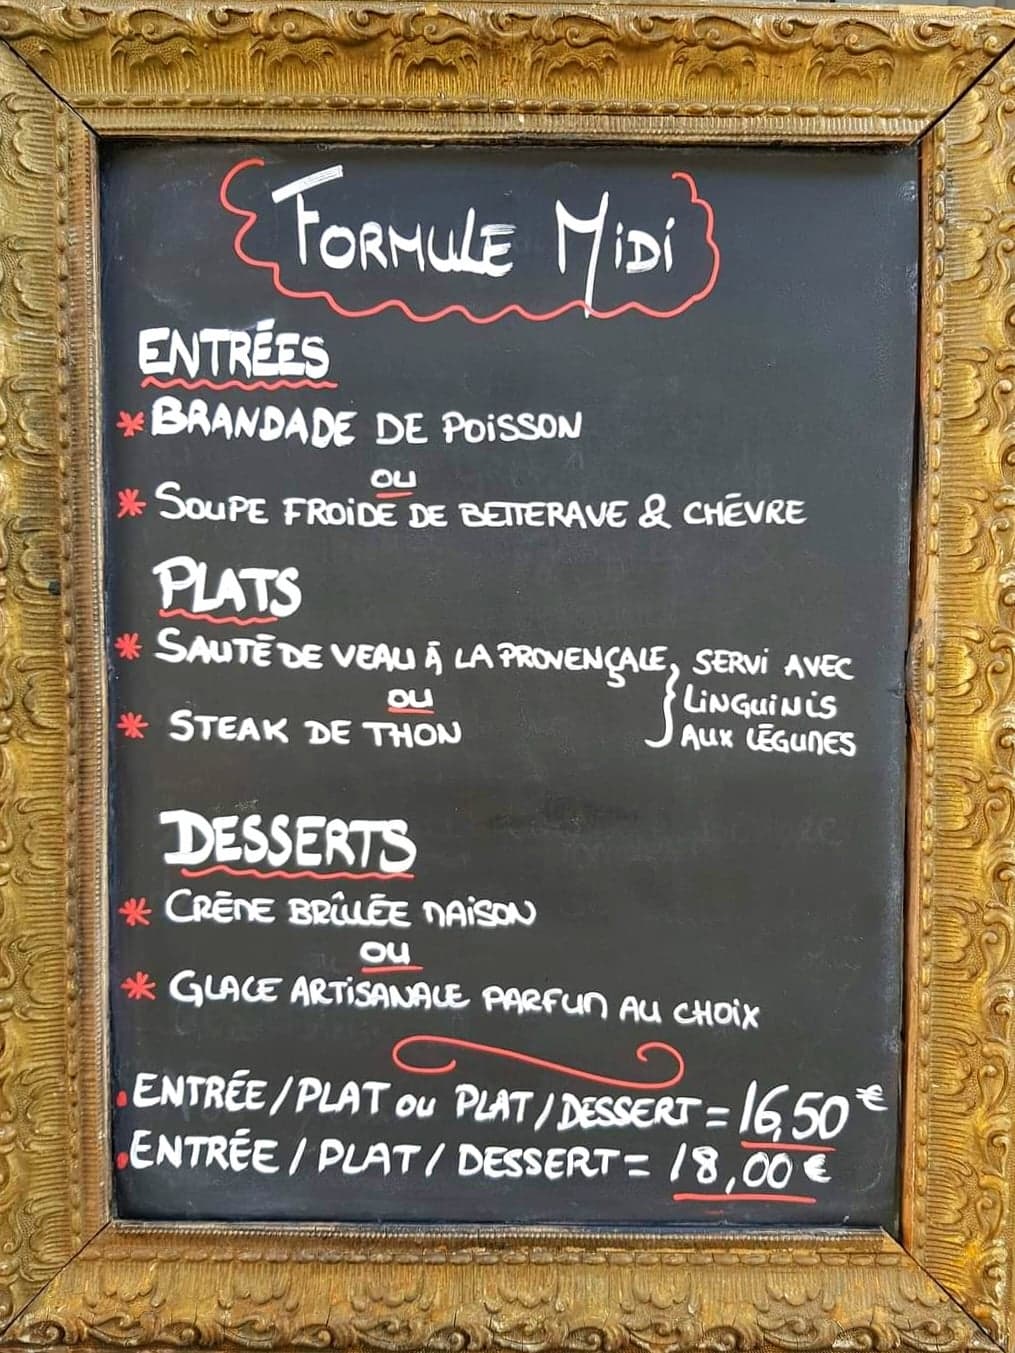 FORMULE MiDi
ENTRÉES
* BRANDADE DE POiSSON
OU
* SOUPE FROiDE DE BETTERAVE & CHÉVRE
PLATS
* SAUTÉ DE VEAU À LA PROVENÇALE, SERVi AVEC
OU
LiNGUiNiS
* STEAK DE THON
AUX LÉGUMES
DESSERTS
* CRÈME BRÛLÉE MAiSON
OU
* GLACE ARTiSANALE PARFUM AU CHOiX
. ENTRÉE / PLAT OU PLAT / DESSERT = 16,50 €
. ENTRÉE / PLAT / DESSERT = 18,00 €